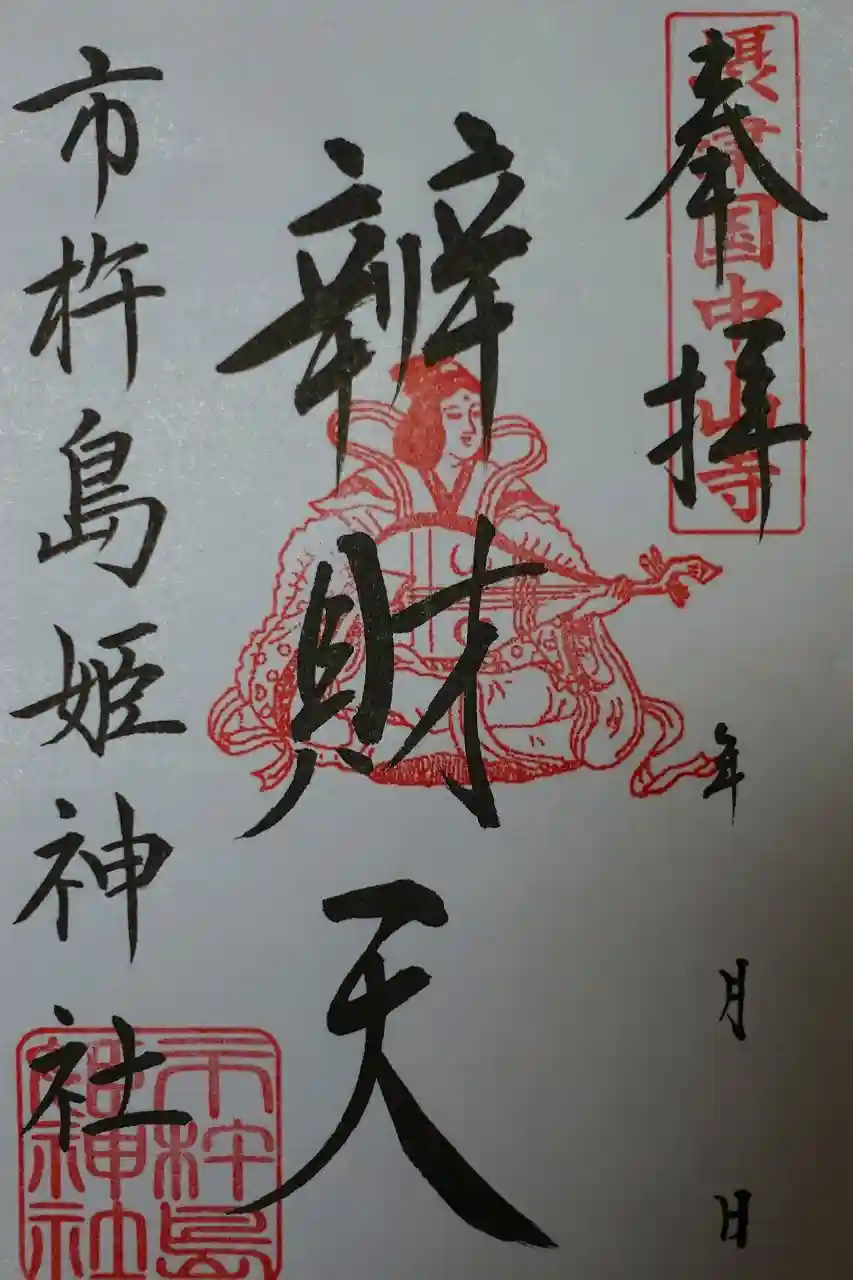 奉拝
摂津国中山寺
年 月 日
辨財天
市杵島姫神社
市杵島
姫神社